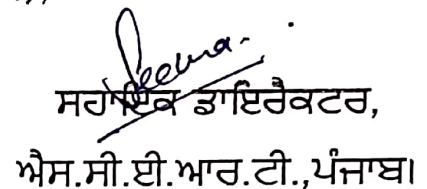 Seema.
ਸਹਾਇਕ ਡਾਇਰੈਕਟਰ,
ਐਸ.ਸੀ.ਈ.ਆਰ.ਟੀ.,ਪੰਜਾਬ।